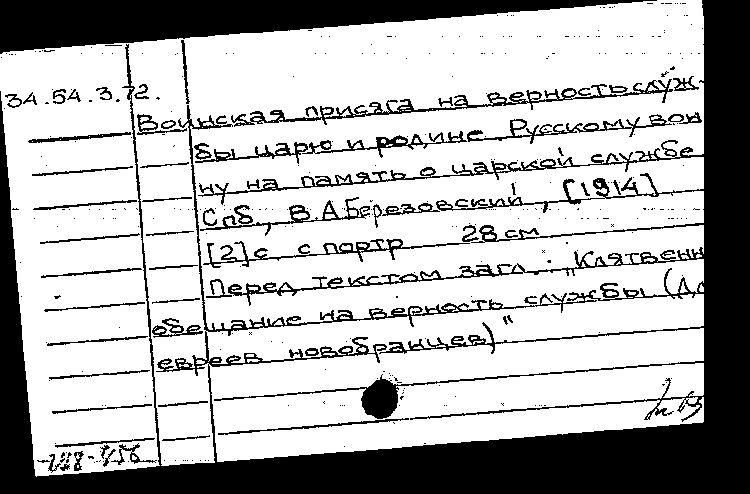 34.54.3.72.
Воинская присяга на верность служ-
бы царю и родине. Русскому вои
ну на память о царской службе
Спб., В.А Березовский, [1914]
[2] с с портр 28 см
Перед текстом загл.: „Клятвенн
обещание на верность службы (Дл
евреев новобранцев)."